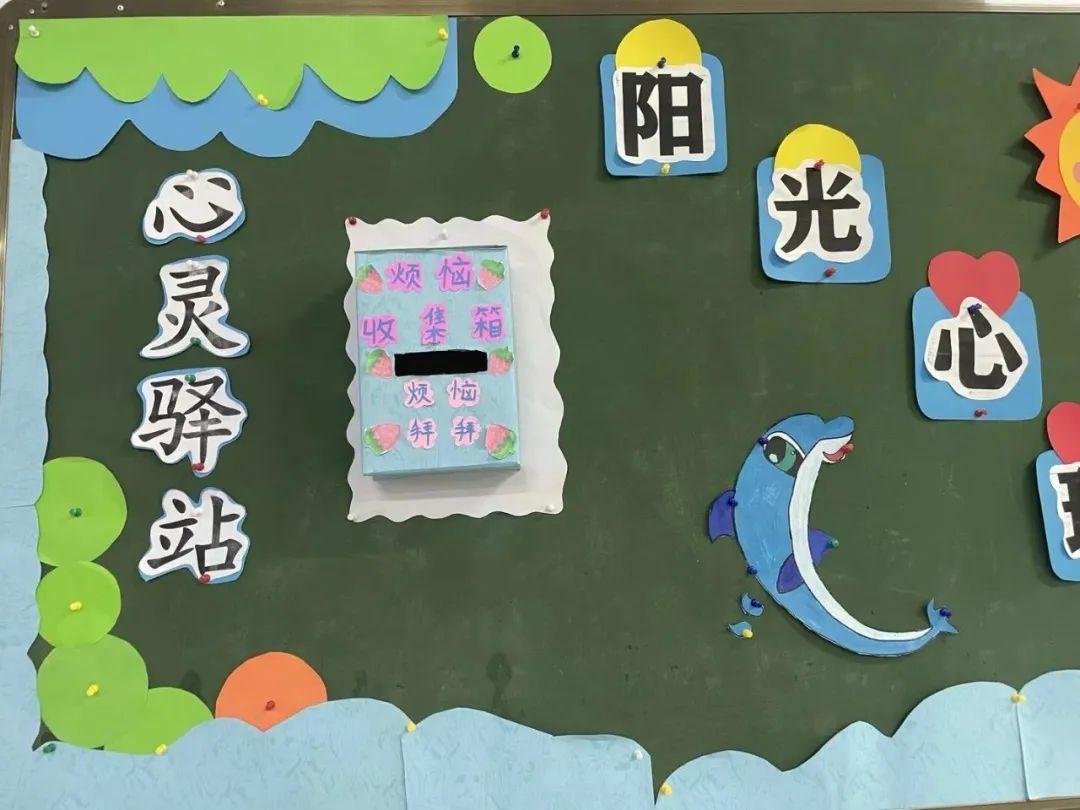 心灵驿站
烦恼
收集箱
烦恼
拜拜
阳光心